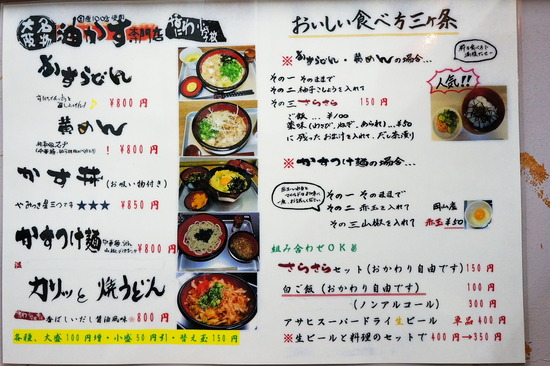 大阪 名物
国産100%使用
油かす専門店
かすうどん
¥800 円
黄めん
! ¥800 円
かす丼 (お吸い物付き)
やみつき星三つです★★★ ¥850 円
かすつけ麺
¥800 円
温
カリッと焼うどん
香ばしいだし醤油風味 800 円
各種、大盛100円増・小盛50円引・替え玉150円
おいしい食べ方三ヶ条
※かすうどん・黄めんの場合...
その一 そのままで
その二 柚子こしょうを入れて
その三 さらさら 150 円
ご飯 ... ¥100
薬味(わさび、ねぎ、あられ)...¥50
に残ったお出汁を入れて、だし茶漬け
人気!!
※かすつけ麺の場合...
その一 そのままで
その二 赤玉を入れて
その三 山椒を入れて
岡山産
赤玉 ¥50
組み合わせOK
さらさらセット(おかわり自由です) 150 円
白ご飯 (おかわり自由です) 100 円
(ノンアルコール) 300 円
アサヒスーパードライ生ビール 単品 400 円
※生ビールと料理のセットで 400 円→350 円